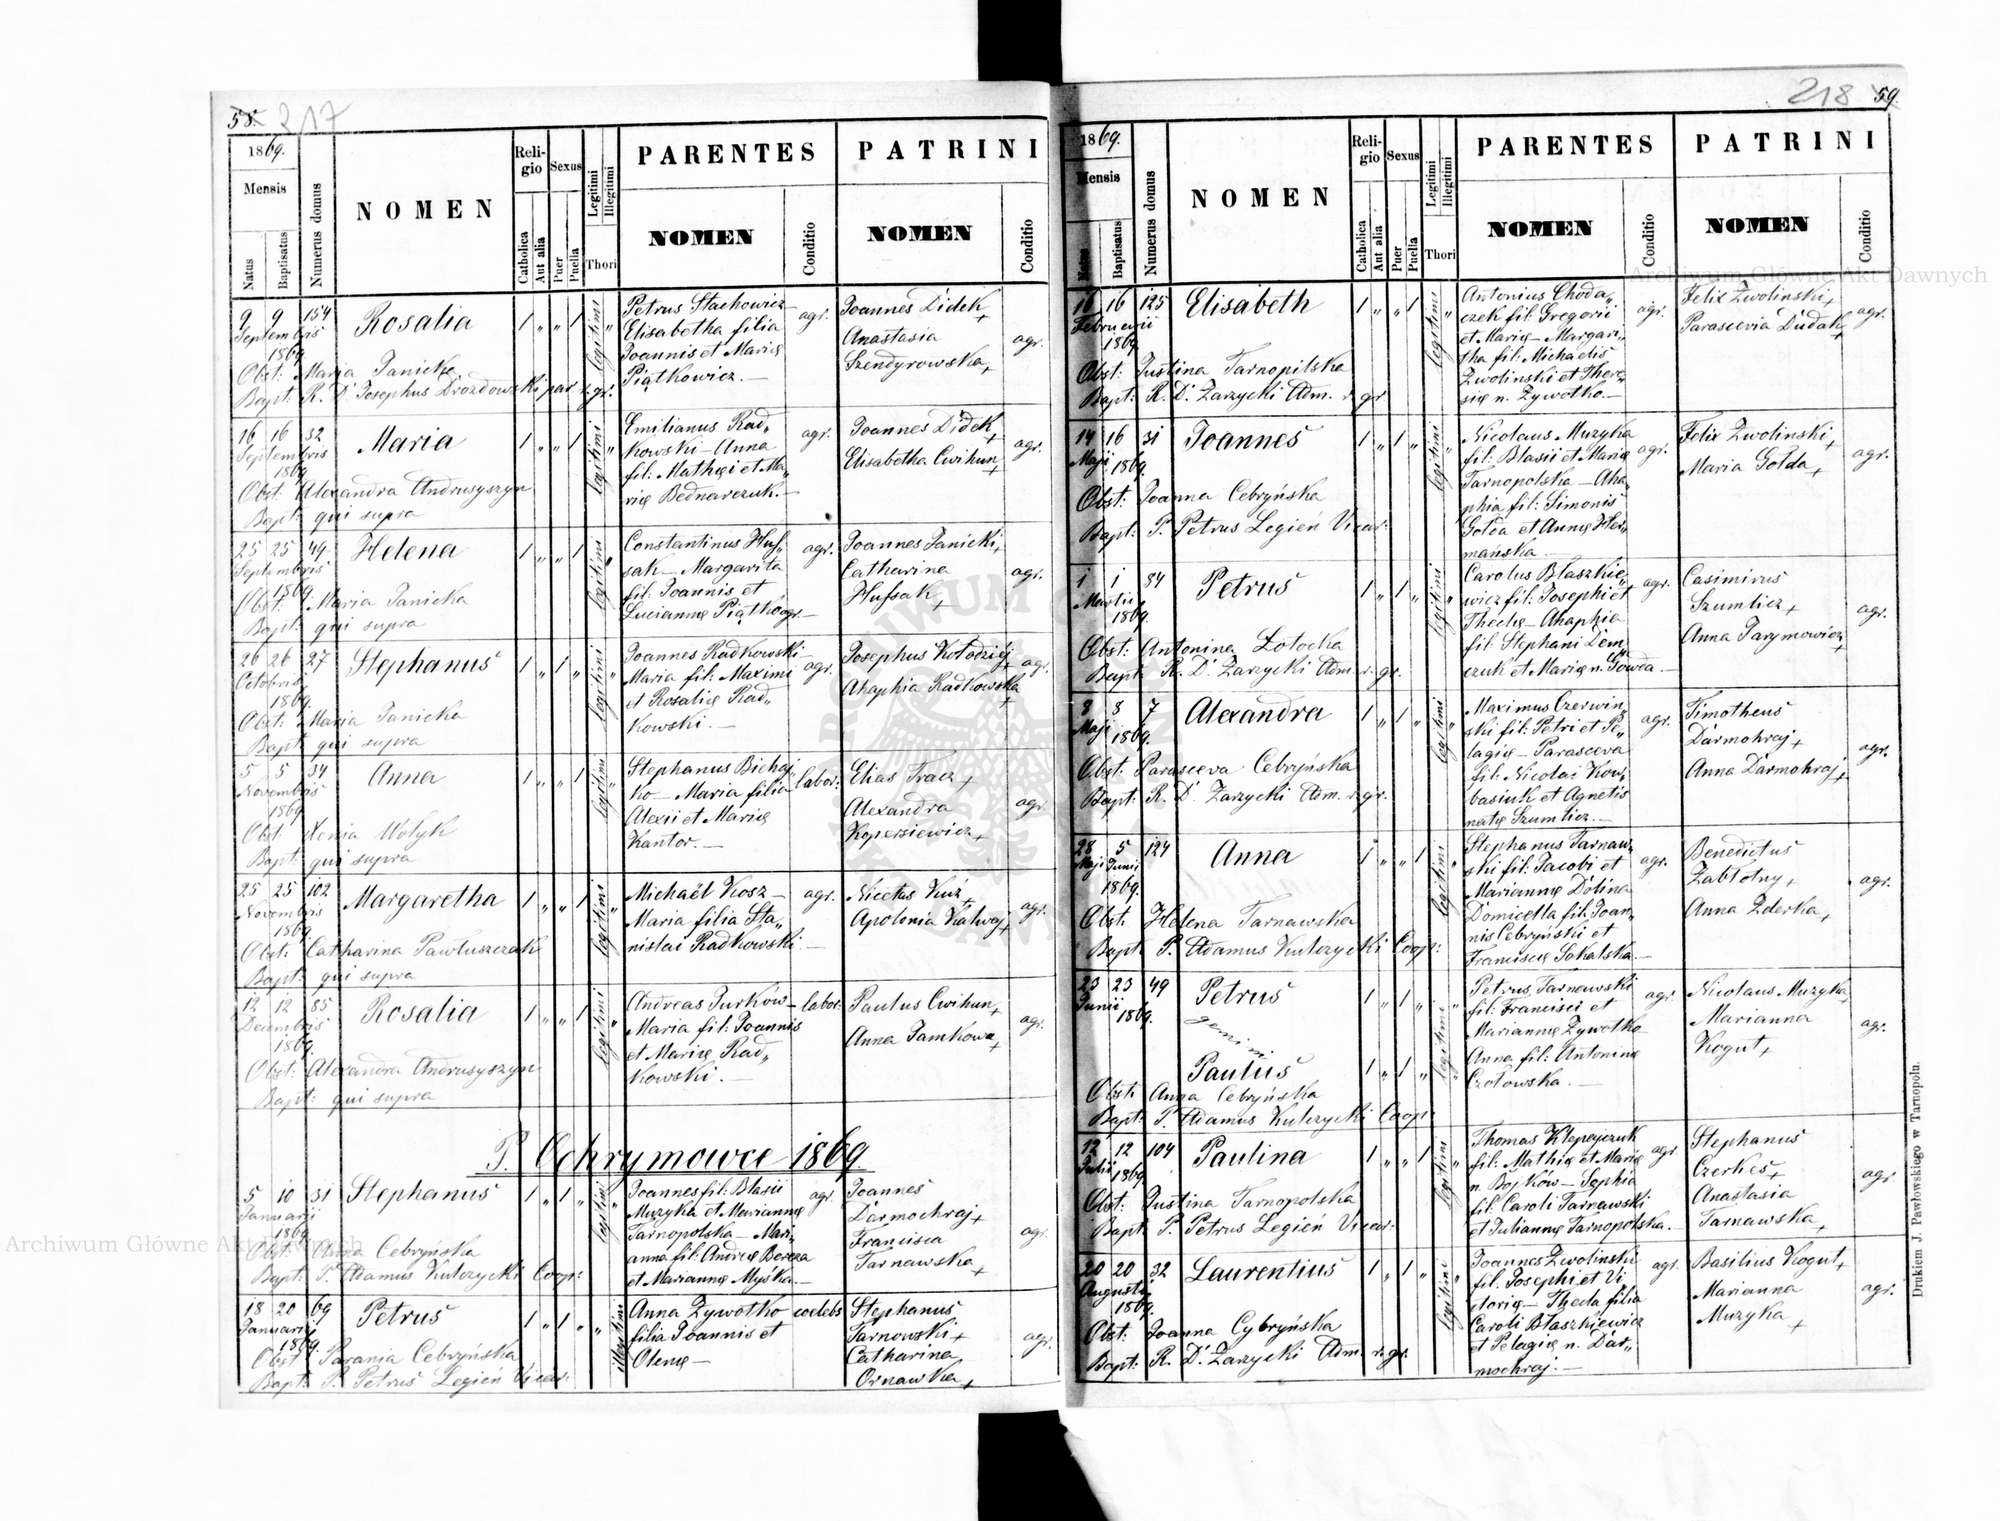 58. 217
1869.
Mensis
Natus
Baptisatus
Numerus domus
NOMEN
Religio
Catholica
Aut alia
Sexus
Puer
Puella
Legitimi
Illegitimi
Thori
PARENTES
NOMEN
Conditio
PATRINI
NOMEN
Conditio
9 9 154 Rosalia 1 „ „ 1 legitimi „
Septembris
1869
Obst: Maria Janicka
Bapt: R. D. Josephus Drozdowski par. r. gr.
Petrus Stachowicz –
Elisabetha filia
Joannis et Marię
Piątkowicz. —
agr.
Joannes Didek +
Anastasia
Szendyrowska +
agr.
16 16 32 Maria 1 „ „ 1 legitimi „
Septembris
1869
Obst: Alexandra Andrusyszyn
Bapt: qui supra
Emilianus Rad„
kowski – Anna
fil: Mathęi et Ma„
rię Bednarczuk. —
agr.
Joannes Didek +
Elisabetha Cwihun +
agr.
25 25 49 Helena 1 „ „ 1 legitimi „
Septembris
1869
Obst: Maria Janicka
Bapt: qui supra
Constantinus Huf„
sak – Margarita
fil: Joannis et
Luciannę
agr.
Joannes Janicki +
Catharina
Hufsak +
agr.
26 26 27 Stephanus 1 „ 1 „ legitimi „
Octobris
1869
Obst: Maria Janicka
Bapt: qui supra
Joannes Radkowski –
Maria fil: Maximi
et Rosalię Rad„
kowski. —
agr.
Josephus Kołodziej +
Ahaphia Radkowska +
agr.
5 5 34 Anna 1 „ „ 1 legitimi „
Novembris
1869
Obst: Xenia Wołyk
Bapt: qui supra
Stephanus Bichaj„
ko – Maria filia
Alexii et Marię
Kantor. —
labor:
Elias Tracz +
Alexandra
Kopersiewicz +
agr.
25 25 102 Margaretha 1 „ „ 1 legitimi „
Novembris
1869
Obst: Catharina Pawłuszczak
Bapt: qui supra
Michaël Kosz –
Maria filia Sta„
nislai Radkowski. —
agr.
Nicetas Kuź +
Apolonia Kalwaj +
agr.
12 12 85 Rosalia 1 „ „ 1 legitimi „
Decembris
1869
Obst: Alexandra Andrusyszyn
Bapt: qui supra
Andreas Jurków –
Maria fil: Joannis
et Marię Rad„
kowski. —
labor:
Paulus Cwihun +
Anna Jamkowa +
agr.
P. Ochrymowce 1869.
5 10 31 Stephanus 1 „ 1 „ legitimi „
Januarii
1869
Obst: Anna Cebryńska
Bapt: P. Adamus Kulczycki Coop:
Joannes fil: Blasii
Muzyka et Mariannę
Tarnopolska – Mari„
anna fil: Andreę Bereza
et Mariannę Myśka. —
agr.
Joannes
Darmochraj +
Francisca
Tarnawska +
agr.
18 20 69 Petrus 1 „ 1 „ „ illegitimi
Januarii
1869.
Obst: Parania Cebryńska
Bapt: P. Petrus Legień Vicar:
Anna Zywotko
filia Joannis et
Olenę —
coelebs
Stephanus
Tarnowski +
Catharina
Ornawka +
agr.
218 59.
1869.
Mensis
Natus
Baptisatus
Numerus domus
NOMEN
Religio
Catholica
Aut alia
Sexus
Puer
Puella
Legitimi
Illegitimi
Thori
PARENTES
NOMEN
Conditio
PATRINI
NOMEN
Conditio
16 16 125 Elisabeth 1 „ „ 1 legitimi
Februarii
1869
Obst: Justina Tarnopilska
Bapt: R. D. Zarzycki Adm. r. gr.
Antonius Choda„
czek fil: Gregorii
et Marię – Margari„
tha fil: Michaelis
Zwolinski et There„
się n. Zywotko. —
agr.
Felix Zwolinski +
Parascevia Dudak +
agr.
14 16 31 Joannes 1 „ 1 „ legitimi „
Maji 1869.
Obst: Joanna Cebryńska
Bapt: P. Petrus Legień Vicar:
Nicolaus Muzyka
fil: Blasii et Marię
Tarnopolska – Aha„
phia fil: Simonis
Gołda et Annę Her„
mańska —
agr.
Felix Zwolinski +
Maria Gołda +
agr.
1 1 84 Petrus 1 „ 1 „ legitimi „
Martii
1869.
Obst: Antonina Łotocka
Bapt: R. D. Zarzycki Adm. r. gr.
Carolus Błaszkie„
wicz fil: Josephi et
Theclę – Ahaphia
fil: Stephani Dem„
czuk et Marię n. Gowda. —
agr.
Casimirus
Szumlicz +
Anna Jarymowicz +
agr.
8 8 7 Alexandra 1 „ 1 „ legitimi „
Maji 1869.
Obst: Parasceva Cebryńska
Bapt: R. D. Zarzycki Adm. r. gr.
Maximus Czerwin„
ski fil: Petri et Pe„
lagię – Parasceva
fil: Nicolai Kow„
basiuk et Agnetis
natę Szumlicz. —
agr.
Timotheus
Darmohraj +
Anna Darmohraj +
agr.
28 5 124 Anna 1 „ „ 1 legitimi „
Maji Junii
1869.
Obst: Helena Tarnawska
Bapt: P. Adamus Kulczycki Coop:
Stephanus Tarnaw„
ski fil: Jacobi et
Mariannę Dolina
Domicella fil: Joan„
nis Cebryński et
Franciscę Sokalska. —
agr.
Benedictus
Zabłotny +
Anna Zderka +
agr.
23 23 49 Petrus 1 „ 1 „ legitimi „
Junii 1869.
gemini
Paulus 1 „ 1 „ „
Obst: Anna Cebryńska
Bapt: P. Adamus Kulczycki Coop:
Petrus Tarnawski
fil: Francisci et
Mariannę Zywotko
Anna fil: Antoninę
Czołowska. —
agr.
Nicolaus Muzyka +
Marianna
Kogut +
agr.
12 12 104 Paulina 1 „ „ 1 legitimi „
Julii 1869
Obst: Justina Tarnopolska
Bapt: P. Petrus Legień Vicar:
Thomas Klepajczuk
fil: Mathię et Marię
n. Bojków – Sophia
fil: Caroli Tarnawski
et Juliannę Tarnopolska. —
agr.
Stephanus
Czerkes +
Anastasia
Tarnawska +
agr.
20 20 32 Laurentius 1 „ 1 „ legitimi „
Augusti
1869.
Obst: Joanna Cybryńska
Bapt: R. D. Zarzycki Adm. r. gr.
Joannes Zwolinski
fil: Josephi et Vi„
ctorię – Thecla filia
Caroli Błaszkiewicz
et Pelagię n. Dar„
mochraj. —
agr.
Basilius Kogut +
Marianna
Muzyka +
agr.
Drukiem J. Pawłowskiego w Tarnopolu.
Archiwum Główne Akt Dawnych
Archiwum Główne Akt Dawnych